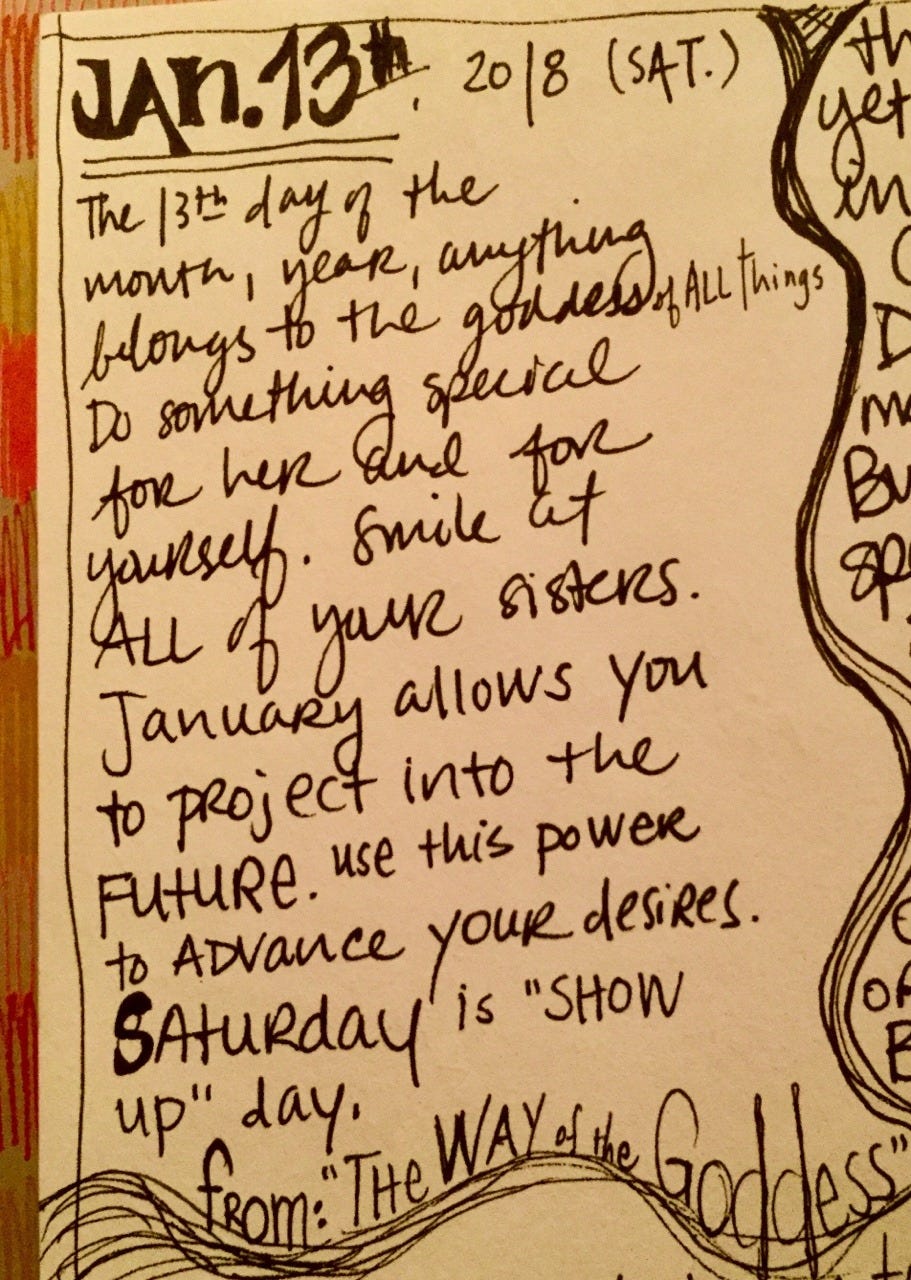 JAN. 13th, 2018 (SAT.)
The 13th day of the
month, year, anything
belongs to the goddess of ALL things
Do something special
for her and for
yourself. Smile at
ALL of your sisters.
January allows you
to project into the
FUTURE. use this power
to ADVance YOUR desires.
SATURday is "SHOW
up" day.
from: "THe WAY of the Goddess"
yet
in